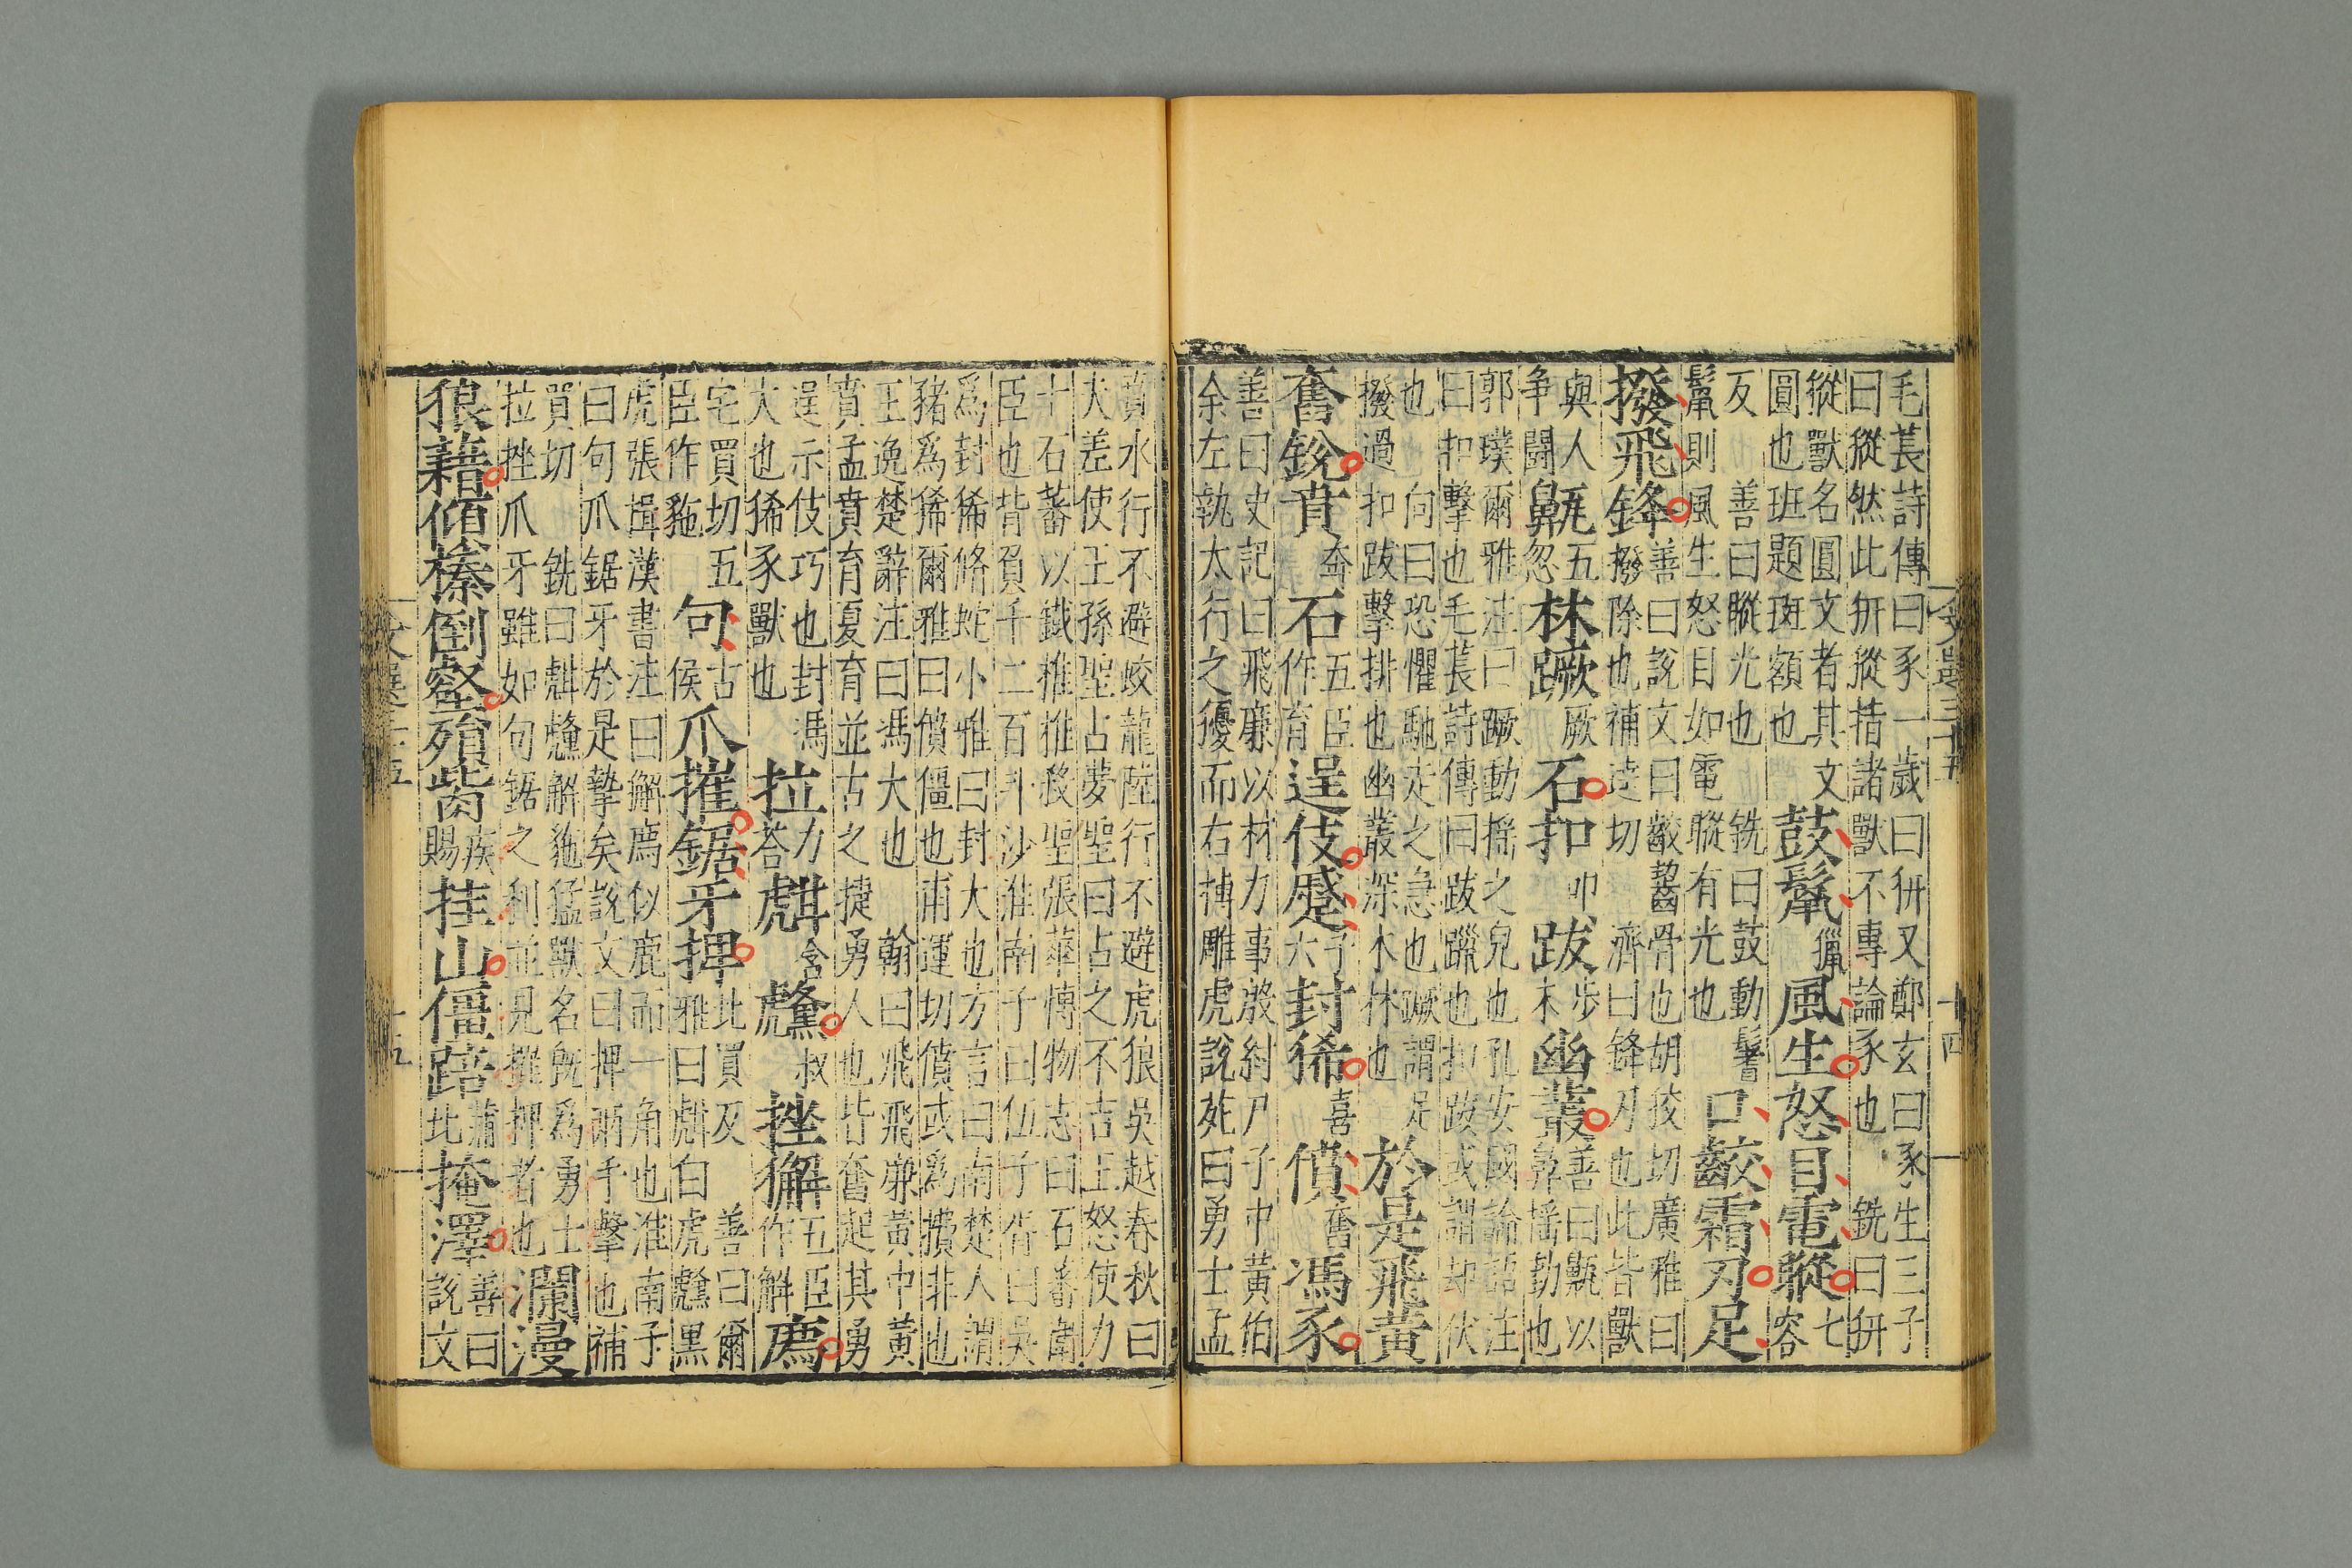 文選三十五　十四
毛萇詩傳曰豕一歲曰豣又鄭玄曰豕生三子
曰豵然此豣豵指諸獸不專論豕也　銑曰豣
豵獸名圓文者其文
圓也班題斑額也
鼓鬛獵風生怒目電瞛七容
反　善曰瞛光也　銑曰鼓動鬐
鬛則風生怒目如電瞛有光也
口齩霜刃足
撥飛鋒
善曰說文曰齩齧骨也胡狡切廣雅曰
撥除也補達切　濟曰鋒刃也此皆獸
與人
争鬪
鼿五忽林蹶厥石扣叩跋步末幽叢
善曰鼿以
鼻摇動也
郭璞爾雅注曰蹶動摇之皃也孔安國論語注
曰扣擊也毛萇詩傳曰跋躐也扣跋或謂却伏
也　向曰恐懼馳走之急也蹶謂足
撥過扣跋擊排也幽叢深木林也
於是飛黃
奮銳賁奔石五臣作育逞伎蹙子六封狶喜僨奮馮豕
善曰史記曰飛廉以材力事殷紂尸子中黃伯
余左執太行之獶而右搏雕虎說死曰勇士孟
賁水行不避蛟龍陸行不避虎狼吳越春秋曰
大差使王孫聖占夢聖曰占之不吉王怒使力
士石蕃以鐵椎椎殺聖張華博物志曰石蕃衛
臣也背負千二百斗沙淮南子曰伍子胥曰吳
爲封狶脩蛇小雅曰封大也方言曰南楚人謂
豬爲狶爾雅曰僨僵也甫運切僨或爲㩌非也
王逸楚辭注曰馮大也　翰曰飛飛廉黃中黃
賁孟賁育夏育並古之捷勇人也皆奮起其勇
逞示伎巧也封馮
大也狶豕獸也
拉力荅甝含虪叔挫獬五臣作解廌
宅買切五
臣作豸
句古侯爪摧鋸牙捭
北買反　善曰爾
雅曰甝白虎虪黑
虎張揖漢書注曰解廌似鹿而一角也淮南子
曰句爪鋸牙於是摯矣說文曰捭兩手擊也補
買切　銑曰甝虪解豸猛獸名旣爲勇士
拉挫爪牙雖如句鋸之利並見摧捭者也
瀾漫
狼藉傾榛倒壑殞胔疾賜挂山僵踣蒲北掩澤
善曰
說文
文選三十五　十五